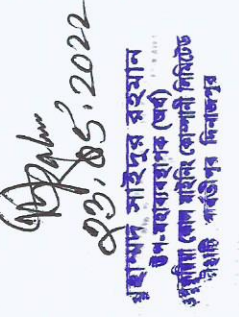 23.05.2022
মুহাম্মদ সাইদুর রহমান
উপ-মহাব্যবস্থাপক (অর্থ)
বড়পুকুরিয়া কোল মাইনিং কোম্পানী লিমিটেড
চৌহাটি পার্বতীপুর দিনাজপুর